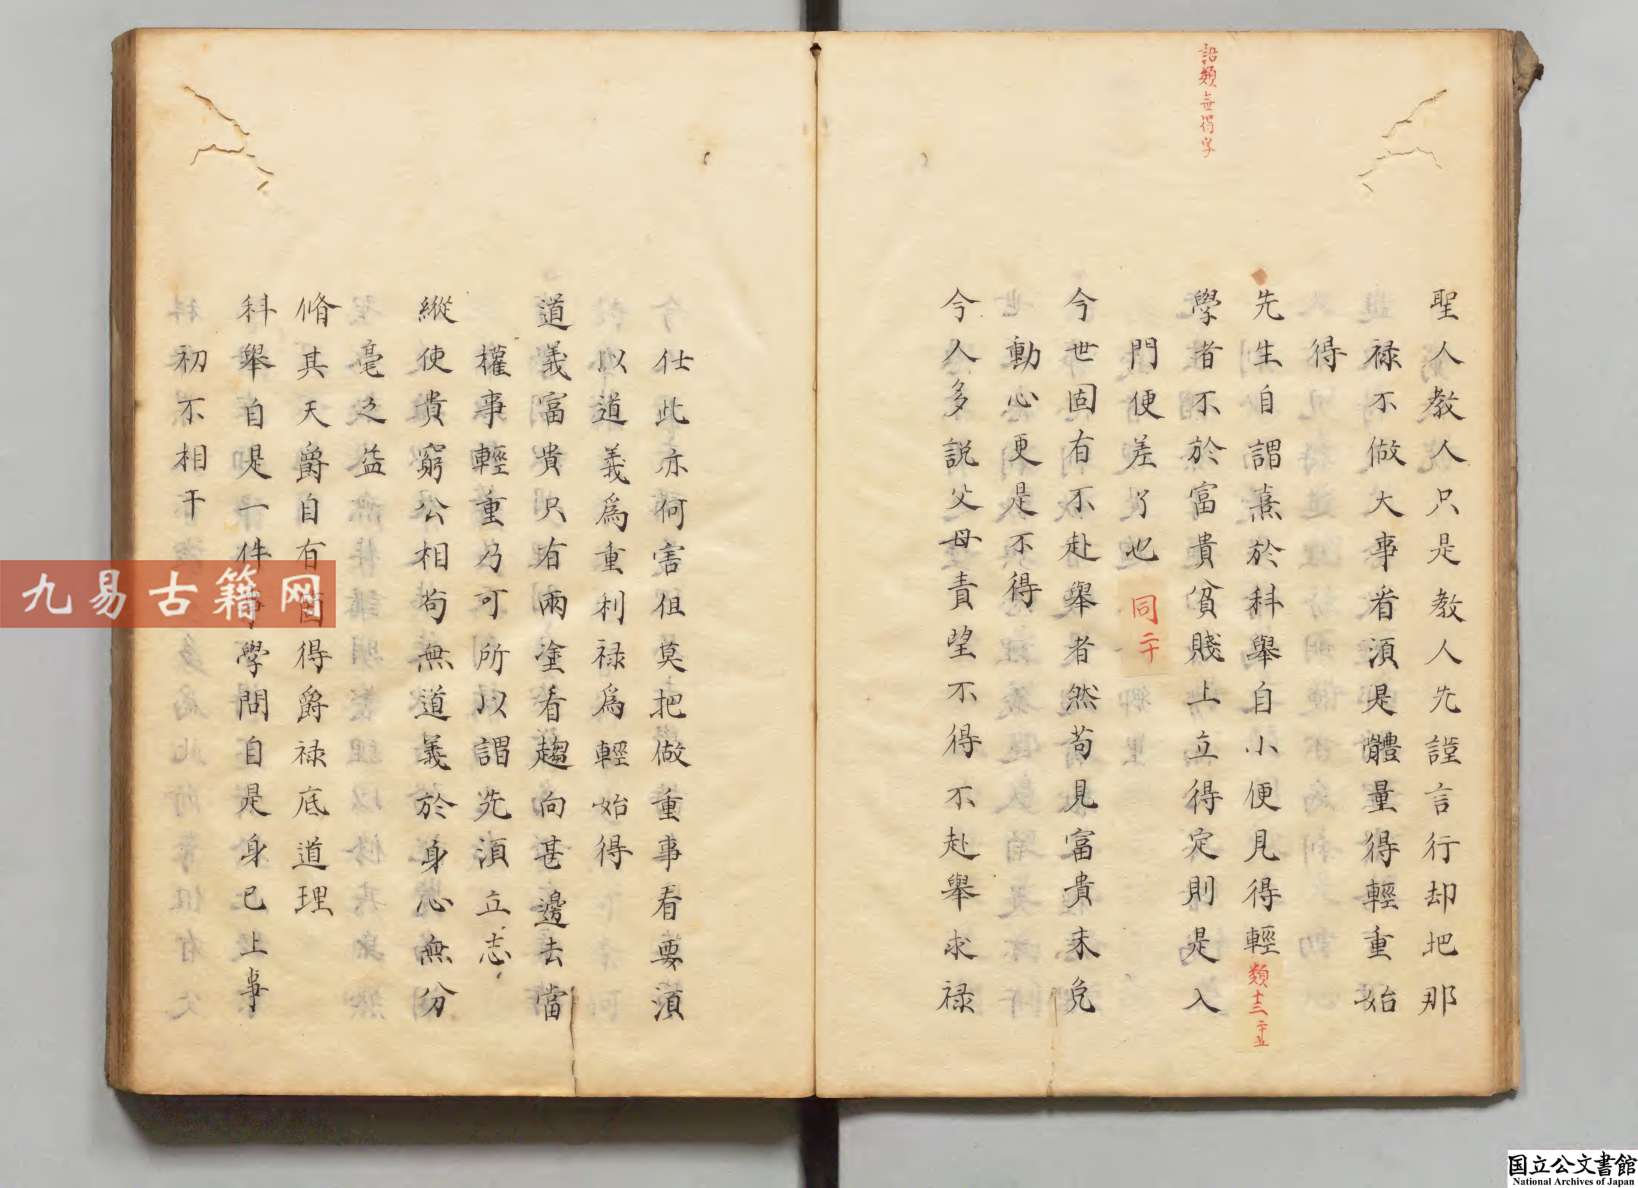 聖人教人只是教人先謹言行却把那
禄不做大事看須是體量得輕重始
得
先生自謂熹於科舉自小便見得輕
類十三 二十五
語類無得字
學者不於富貴貧賤上立得定則是入
門便差了也
同二十
今世固有不赴舉者然苟見富貴未免
動心更是不得
今人多説父母責望不得不赴舉求禄
仕此亦何害但莫把做重事看要須
以道義爲重利禄爲輕始得
道義富貴只有兩塗看趨向甚邊去當
權事輕重乃可所以謂先須立志
縱使貴窮公相苟無道義於身心無分
毫之益
脩其天爵自有箇得爵禄底道理
科舉自是一件事學問自是身已上事
初不相干
九易古籍网
国立公文書館
National Archives of Japan